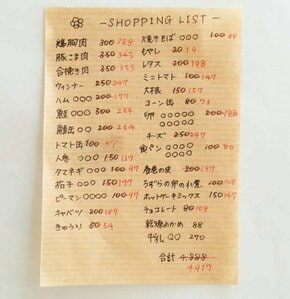 -SHOPPING LIST-
鶏胸肉 300 288
豚こま肉 350 345
合挽き肉 350 355
ウィンナー 250 247
ハム ○○○ 200 197
鮭 ○○○ 300 264
鯖缶 ○○ 200 264
トマト缶 100
人参 ○○○ 150 137
タマネギ ○○○ 100 97
茄子 ○○○ 150 147
ピーマン ○○○○ 100 97
キャベツ 200 189
きゅうり 50 54
焼きそば ○○○ 100 88
もやし 20 19
レタス 200 188
ミニトマト 100 147
大根 150 157
コーン缶 80 73
卵 ○○○○○ 200 188
○○○○○
チーズ 250 297
食パン ○○○ 100 80
○○○
春巻の皮 200 197
うずらの卵の水煮 100 108
ホットケーキミックス 150 147
チョコレート 80 108
乾燥わかめ 88
牛乳 ○○ 270
合計 4,888
4,917